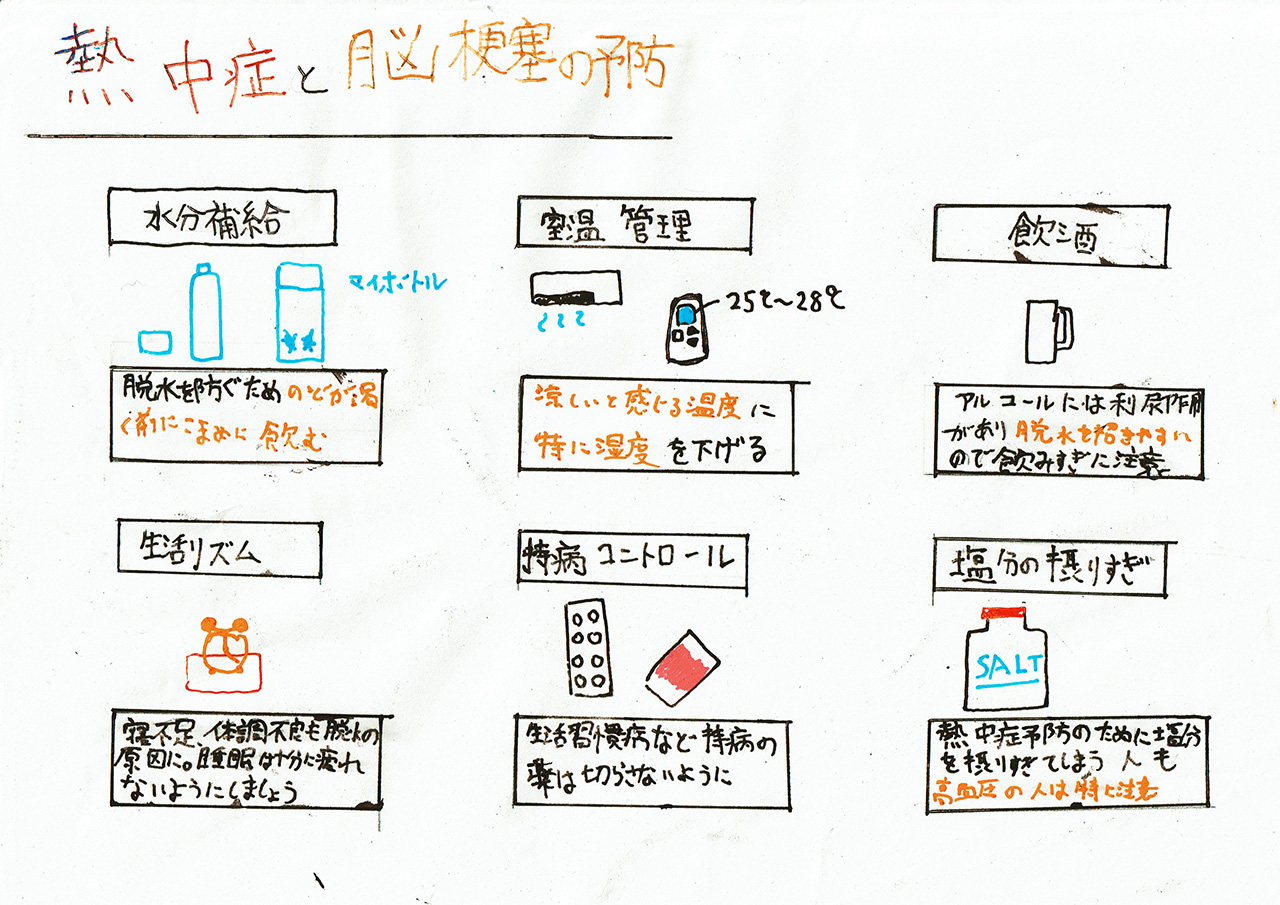 熱中症と脳梗塞の予防
水分補給
マイボトル
脱水を防ぐためのどが渇
く前にこまめに飲む
室温管理
25℃〜28℃
涼しいと感じる温度に
特に湿度を下げる
飲酒
アルコールには利尿作用
があり脱水を招きやすい
ので飲みすぎに注意
生活リズム
寝不足、体調不良も脱水の
原因に。睡眠は十分に疲れ
ないようにしましょう
持病コントロール
生活習慣病など持病の
薬は切らさないように
塩分の摂りすぎ
SALT
熱中症予防のために塩分
を摂りすぎてしまう人も
高血圧の人は特に注意